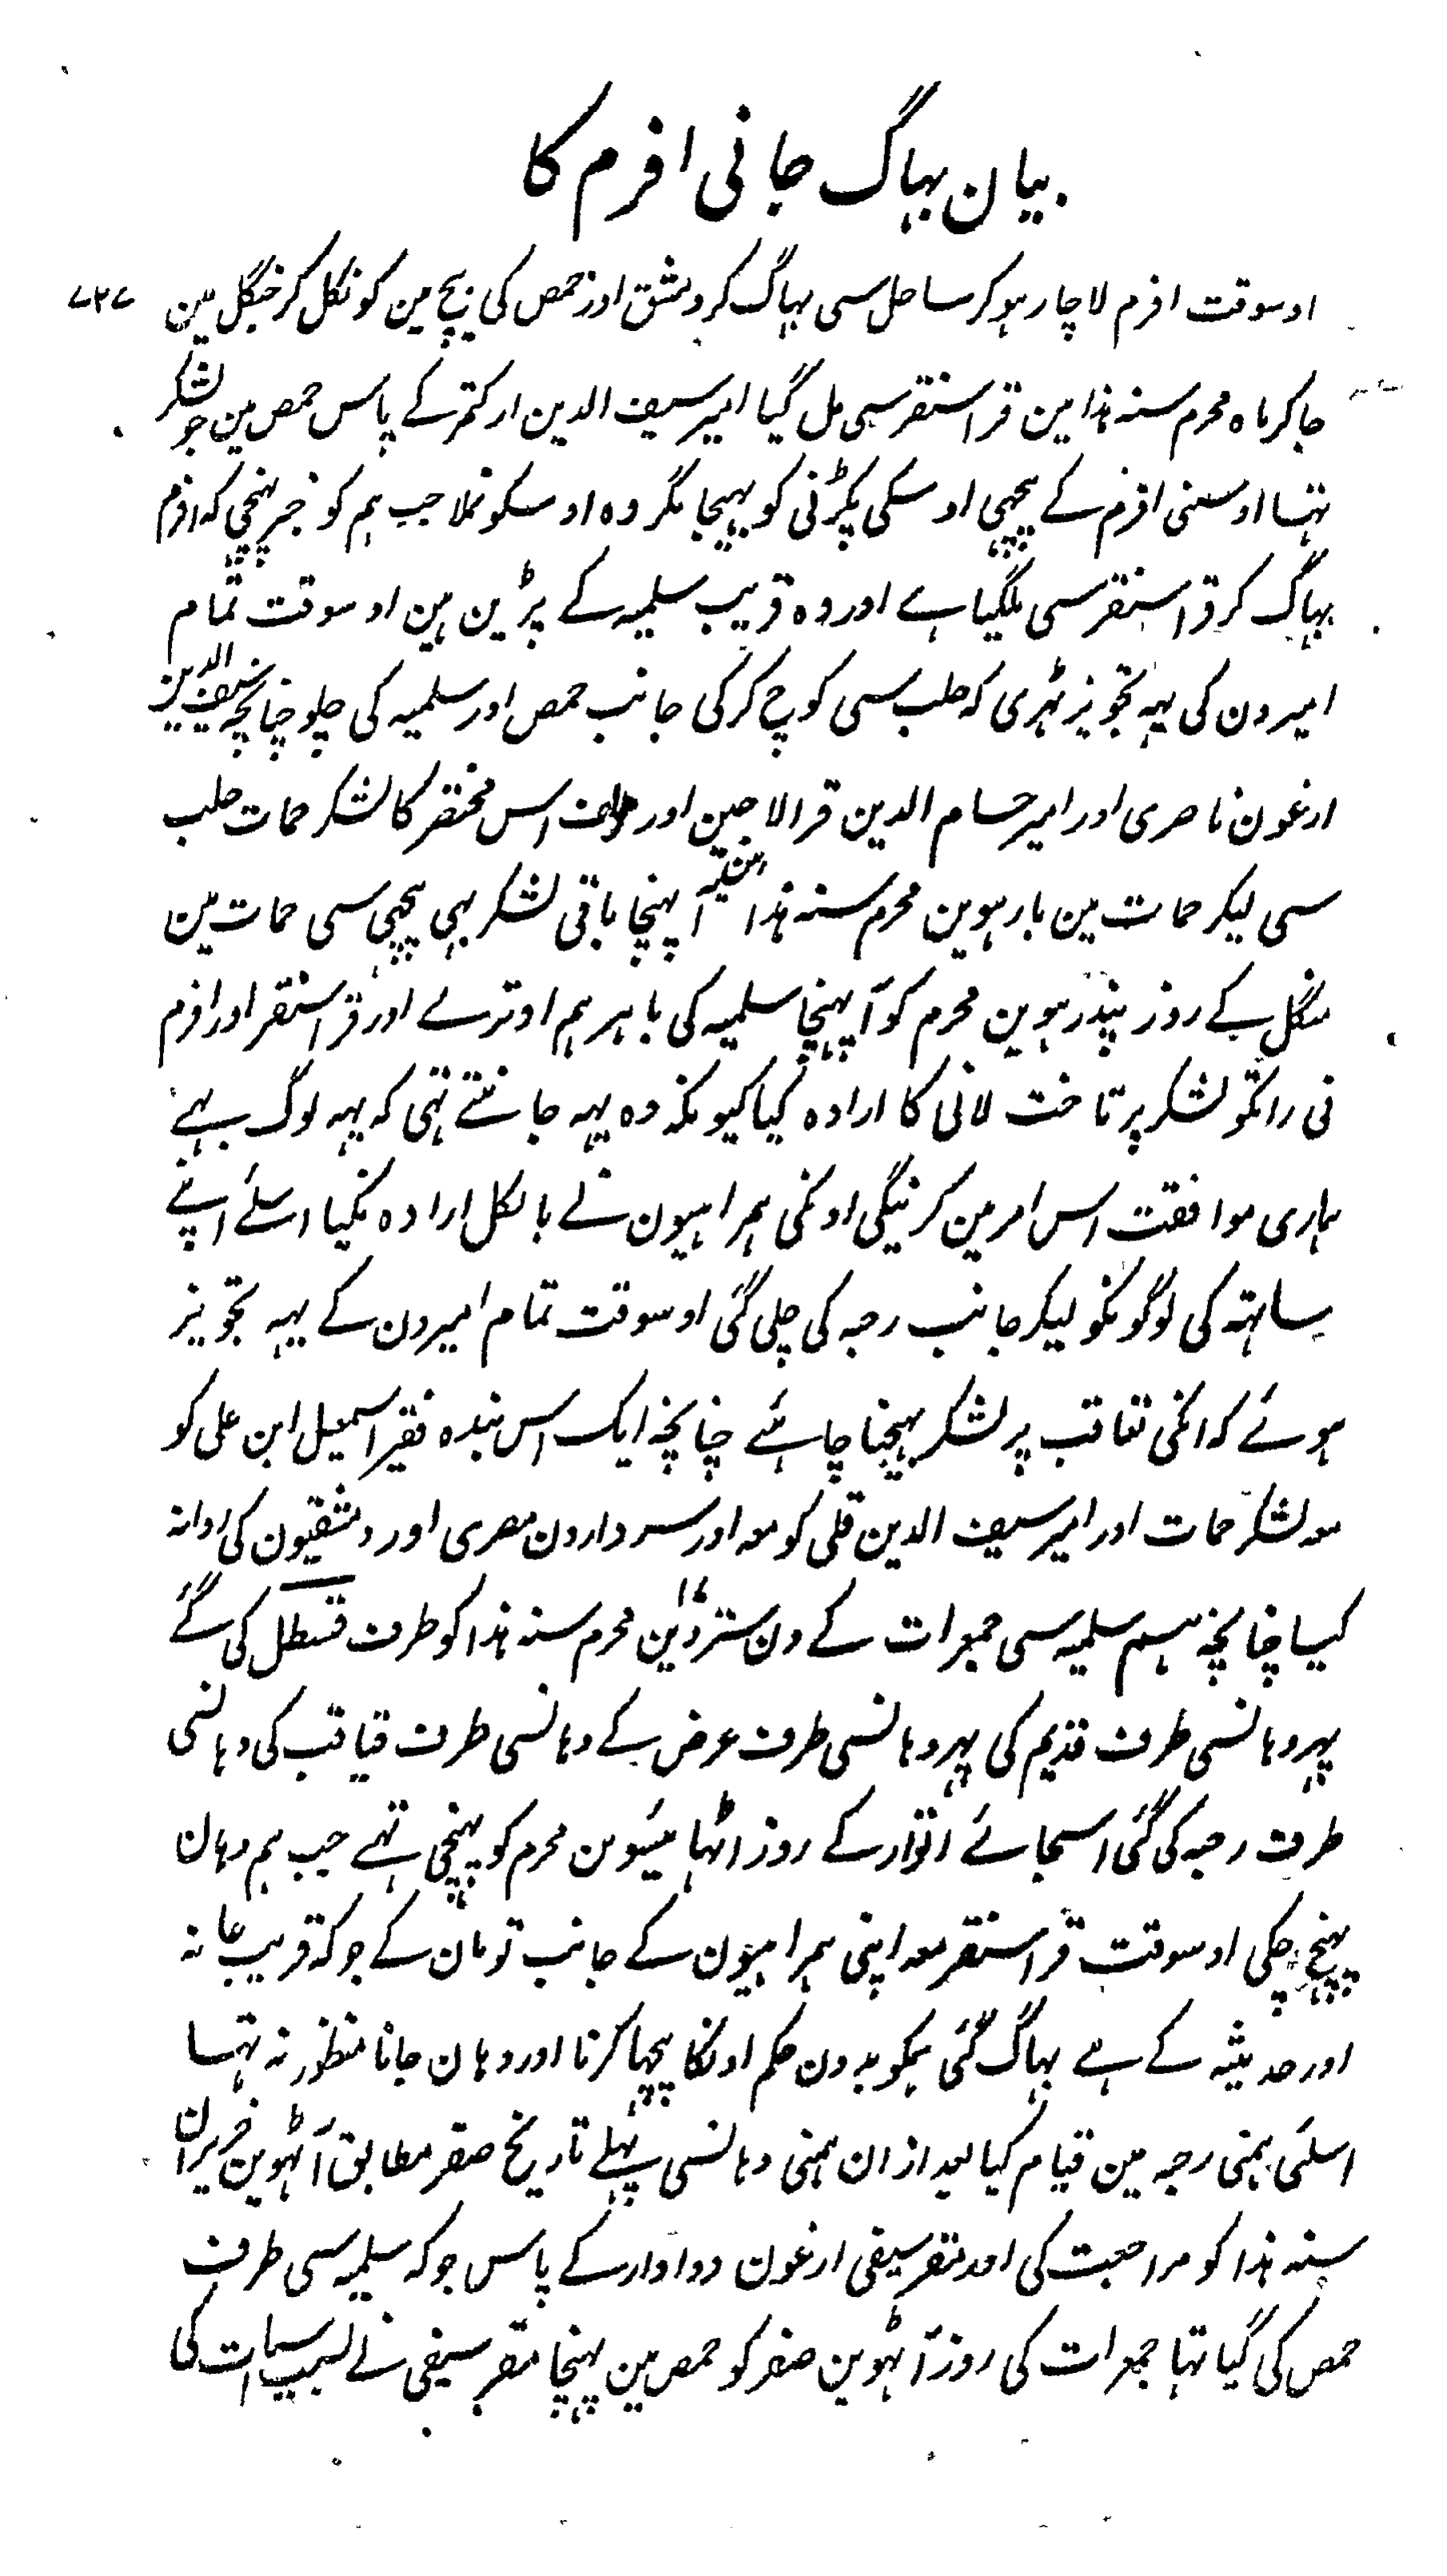 بیان بہاگ جانی افرم کا
اوسوقت افرم لاچار ہوکر ساحل سی بہاگ کر دمشق اور حمص کی بیچ مین کو نکل کر جنگل مین ۷۳۷
جاکر ماہ محرم سنہ ہذا مین قراسنقر سی مل گیا امیر سیف الدین ارکتمر کے پاس حمص مین جو لشکر
تہا اوسنی افرم کے پیچہی اوسکی پکڑنی کو بہیجا مگر وہ اوسکو نملا جب ہم کو خبر پہنچی کہ افرم
بہاگ کر قراسنقر سی ملگیا ہے اور وہ قریب سلمیہ کے پڑین ہین اوسوقت تمام
امیرون کی یہہ تجویز ٹہری کہ حلب سی کوچ کرکی جانب حمص اور سلمیہ کی چلو چنانچہ سیف الدین
ارغون ناصری اور امیر حسام الدین قرالاجین اور مؤلف اس مختصر کا لشکر حمات حلب
سی لیکر حمات مین بارہوین محرم سنہ ہذا آ پہنچا باقی لشکر بہی پیچہی سی حمات مین
منگل کے روز پندرہوین محرم کو آ پہنچا سلمیہ کی باہر ہم اوترے اور قراسنقر اور افرم
نی راتکو لشکر پر تاخت لانی کا ارادہ کیا کیونکہ وہ یہہ جانتے تہی کہ یہہ لوگ بہے
ہماری موافقت اس امر مین کرینگی اونکی ہمراہیون نے بالکل ارادہ نکیا اسلئے اپنے
ساہتہ کی لوگونکو لیکر جانب رحبہ کی چلی گئی اوسوقت تمام امیرون کے یہہ تجویز
ہوئے کہ انکی تعاقب پر لشکر بہیجنا چاہئے چنانچہ ایک اس بندہ فقیر اسمعیل ابن علی کو
معہ لشکر حمات اور امیر سیف الدین قلی کو معہ اور سردارون مصری اور دمشقیون کی روانہ
کیا چنانچہ ہم سلمیہ سی جمعرات کے دن سترہوین ۱۷ محرم سنہ ہذا کو طرف قسطل کی گئے
پہر وہانسی طرف قدیم کی پہر وہانسی طرف عرض کے وہانسی طرف قباقب کی وہانسی
طرف رحبہ کی گئی اسجائے اتوار کے روز اٹہائیسوین محرم کو پہنچی تہے جب ہم وہان
پہنچ چکی اوسوقت قراسنقر معہ اپنی ہمراہیون کے جانب تومان کے جو کہ قریب عانہ
اور حدیثہ کے ہے بہاگ گئی ہمکو بدون حکم اونکا پیچہا کرنا اور وہان جانا منظور نہ تہا
اسلئی ہمنی رحبہ مین قیام کیا بعد ازان ہمنی وہانسی پہلے تاریخ صفر مطابق آٹہوین حزیران
سنہ ہذا کو مراجعت کی اور مقر سیفی ارغون دوادار کے پاس جو کہ سلمیہ سی طرف
حمص کی گیا تہا جمعرات کی روز آٹہوین صفر کو حمص مین پہنچا مقر سیفی نے بسبب اس بات کی